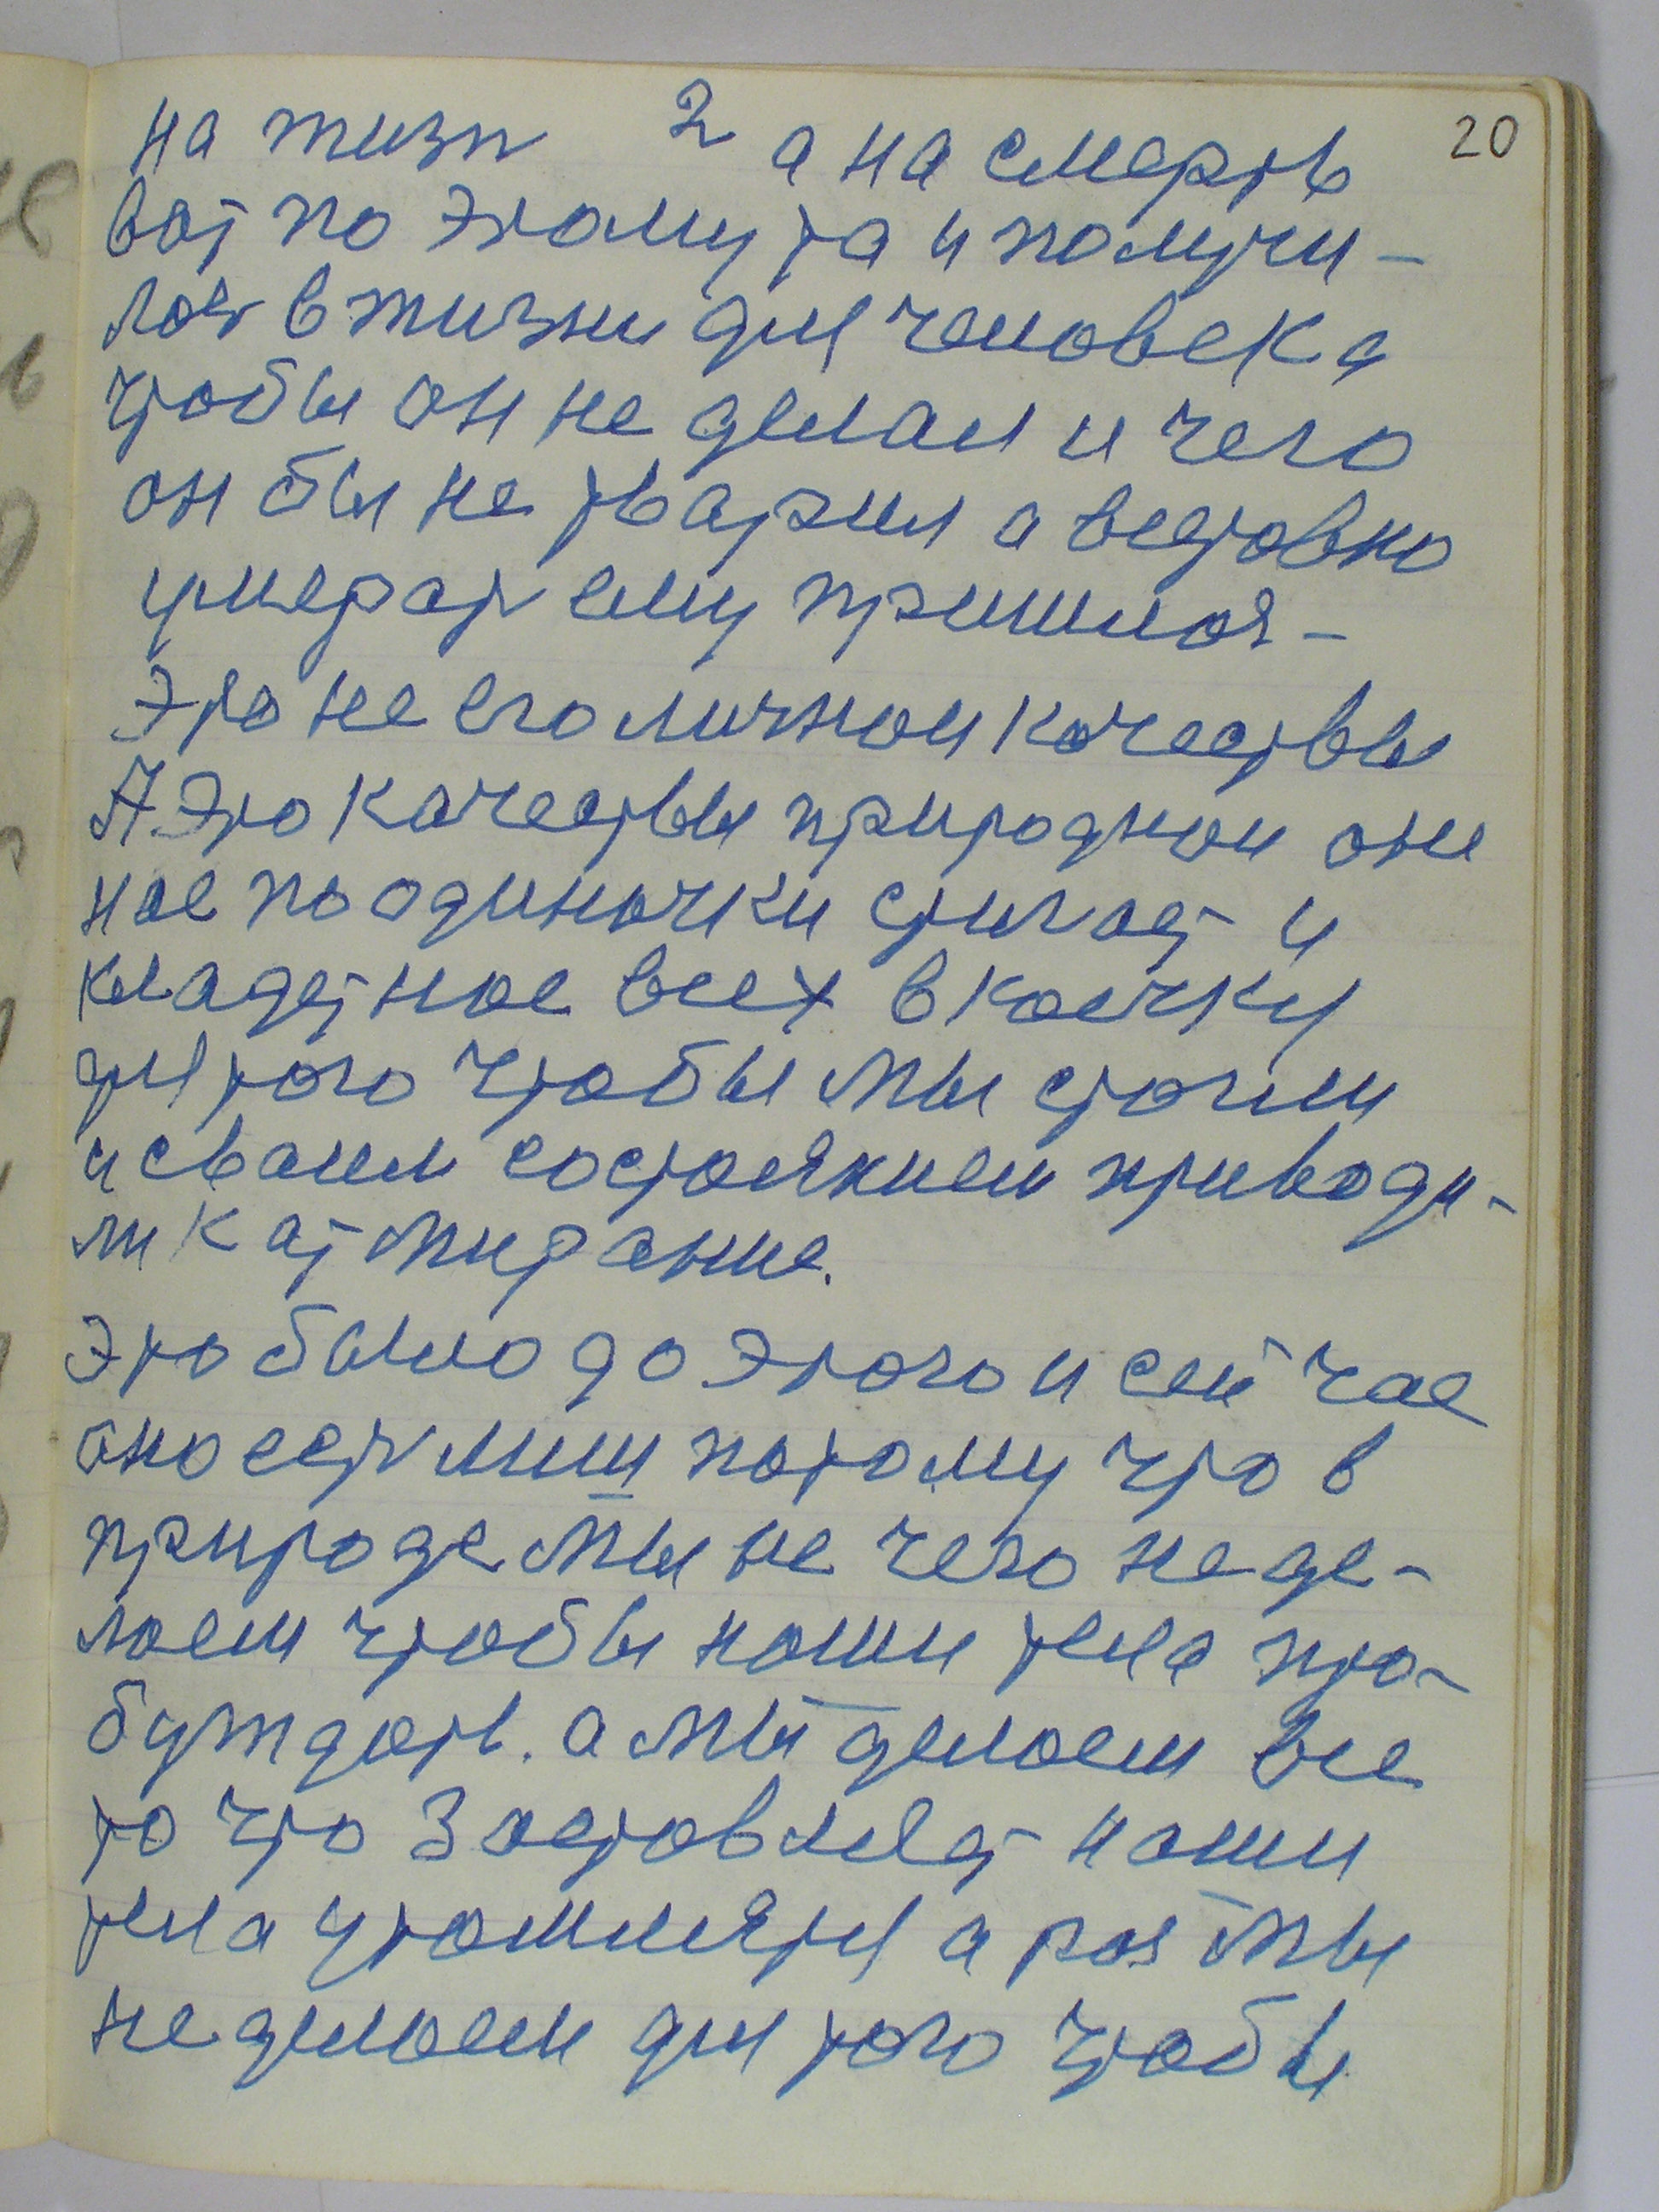 на жизн 2 а на смерть 20
вот по этому та и получи-
лось в жизни для человека
чтобы он не делал и чего
он бы не тварил а всетовно
умерат ему пришлось-
Это не его личнои качествы
А Это качествы природнои они
нас по одиночки стигает и
кладет нас всех в коечку
для того чтобы мы стогли
и сваим состоянием приводи-
ли к атмирание.
Это было до Этого и сейчас
оно ест лиш потому что в
природе мы не чего не де-
лаем чтобы наши тела про-
буждать. а мы делаем все
то что Заставляет наши
тела утомлятся а раз мы
не делаем для того чтобы